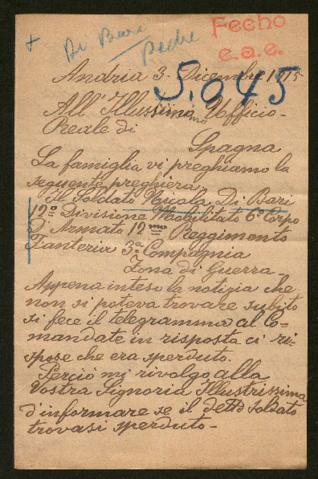 + Di Bari Pedro
Fecho
e.a.e.
5.045
Andria 3. Dicembre 1915
All' Illussimo Ufficio-
Reale di
Spagna
La famiglia vi preghiamo la
seguente preghiera
Il Soldato Nicola Di Bari
12ª Divisione Mobilitati 6º Corpo
D'Armata 12mo Reggimento
Fanteria 3ª Compagnia
Zona di Guerra.
Appena inteso la notizia che
non si poteva trovare subito
si fece il telegramma al Co-
mandate in risposta ci ri-
spose che era sperduto.
Perciò mi rivolgo alla
Vostra Signoria Illustrissima
d'informare se il detto soldato
trovasi sperduto-